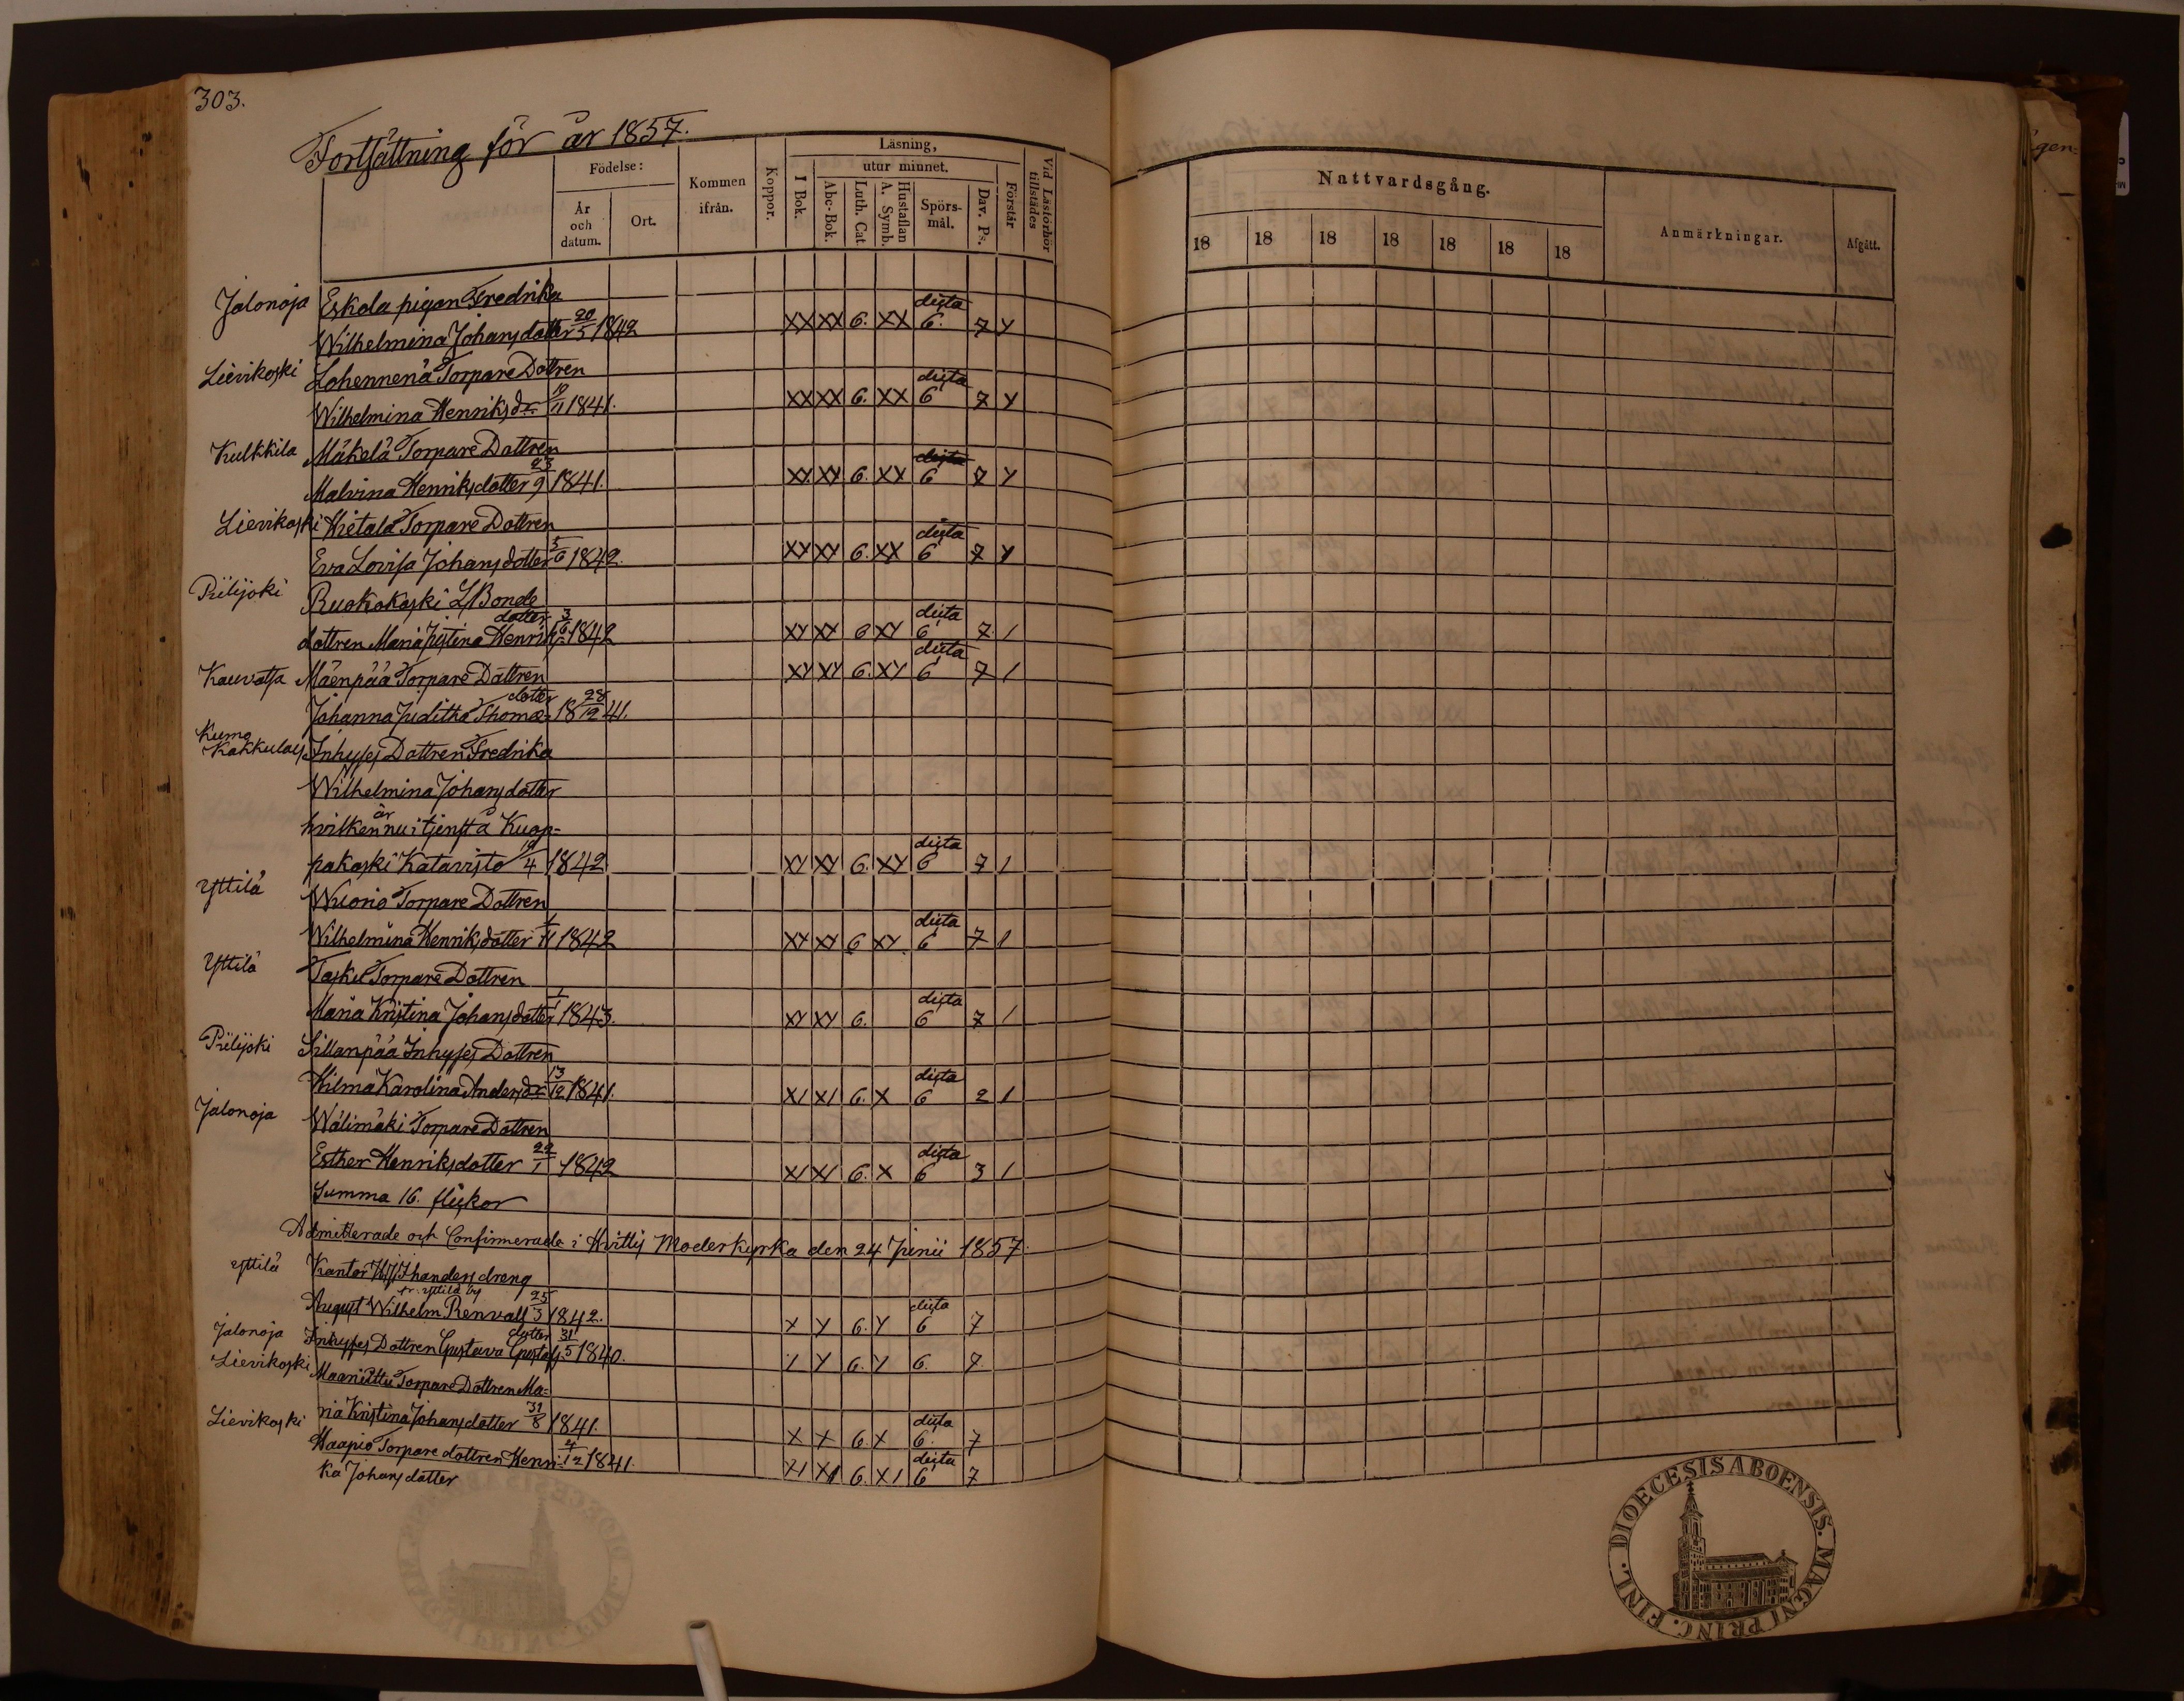 303.
Fortsättning för år 1857.
Födelse:
År och datum.
Ort.
Kommen ifrån.
Koppor.
Läsning,
I Bok.
utur minnet.
Abc-Bok.
Luth. Cat.
Hustaflan A. Symb.
Spörsmål.
Dav. Ps.
Förstår
Vid Läsförhör tillstädes
Nattvardsgång.
18 18 18 18 18 18 18
Anmärkningar.
Afgått.
Jalonoja Eskola pigan Fredrika
Wilhelmina Johansdotter 20/5 1842 XX XX 6. XX dicta 6. 7 Y
Lievikoski Lohennenä Torpare Dottren
Wilhelmina Henriksdr 1841. XX XX 6. XX dicta 6 7 Y
Kulkkila Mäkelä Torpare Dottren
Malvina Henriksdotter 23/9 1841. XX XY 6. XX dicta 6 7 Y
Lievikoski Hietala Torpare Dottren
Eva Lovisa Johansdotter 5/6 1842. XY XY 6. XX dicta 6 7 Y
Piilijoki Ruokokoski L/Bonde
dottren Maria Justina Henriksdotter 3/6 1842 XY XY 6 XY dicta 6 7. 1
Kauvatsa Mäenpää Torpare Dottren XY XY 6. XY dicta 6 7 1
Johanna Juditha Thomædotter 28/12 1841.
Kumo Kakkulais Inhyses Dottren Fredrika
Wilhelmina Johansdotter
hvilken är nu i tjenst å Kuop-
pakoski Katavisto 4 1842 XY XY 6. XY dicta 6 7 1
Yttilä Wuorio Torpare Dottren
Wilhelmina Henriksdotter 1842 XY XY 6 XY dicta 6 7 1
Yttilä Tasku Torpare Dottren
Maria Kristina Johansdotter 1/1 1843. XY XY 6. dicta 6 7 1
Piilijoki Sillanpää Inhyses Dottren
Hilma Karolina Andersdr 13/12 1841. XI XI 6. X dicta 6 2 1
Jalonoja Wälimäki Torpare Dottren
Esther Henriksdotter 22/1 1842 XI XI 6. X dicta 6 3 1
Summa 16. flickor
Admitterade och Confirmerade i Hvittis Moderkyrka den 24 Junii 1857.
Yttilä Kantor Ihanders dreng
fr. Yttilä by
August Wilhelm Renvall 25/3 1842. X Y 6. Y dicta 6 7
Jalonoja Inhyses Dottren Gustava Gustafsdotter 31/5 1840. Y Y 6. Y 6. 7.
Lievikoski Maaniittu Torpare Dottren Ma-
ria Kristina Johansdotter 31/8 1841. X X 6. X dicta 6. 7
Lievikoski Haapio Torpare dottren Henri- 4/12 1841. XI XI 6. XI dicta 6 7
ka Johansdotter
DIOECESIS ABOENSIS. MAGNI PRINC. FINL.